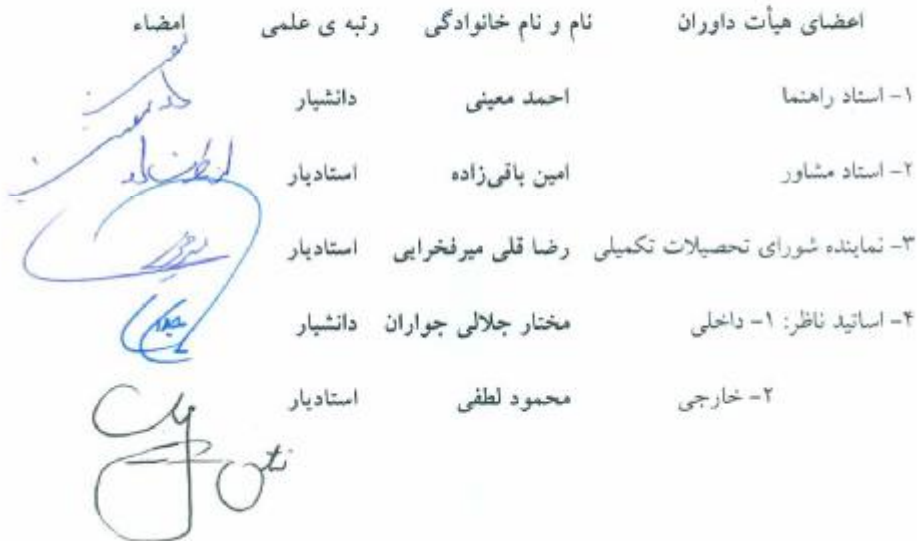 اعضای هیأت داوران نام و نام خانوادگی رتبه ی علمی امضاء
۱- استاد راهنما احمد معینی دانشیار
۲- استاد مشاور امین باقی‌زاده استادیار
۳- نماینده شورای تحصیلات تکمیلی رضا قلی میرفخرایی استادیار
۴- اساتید ناظر: ۱- داخلی مختار جلالی جواران دانشیار
۲- خارجی محمود لطفی استادیار